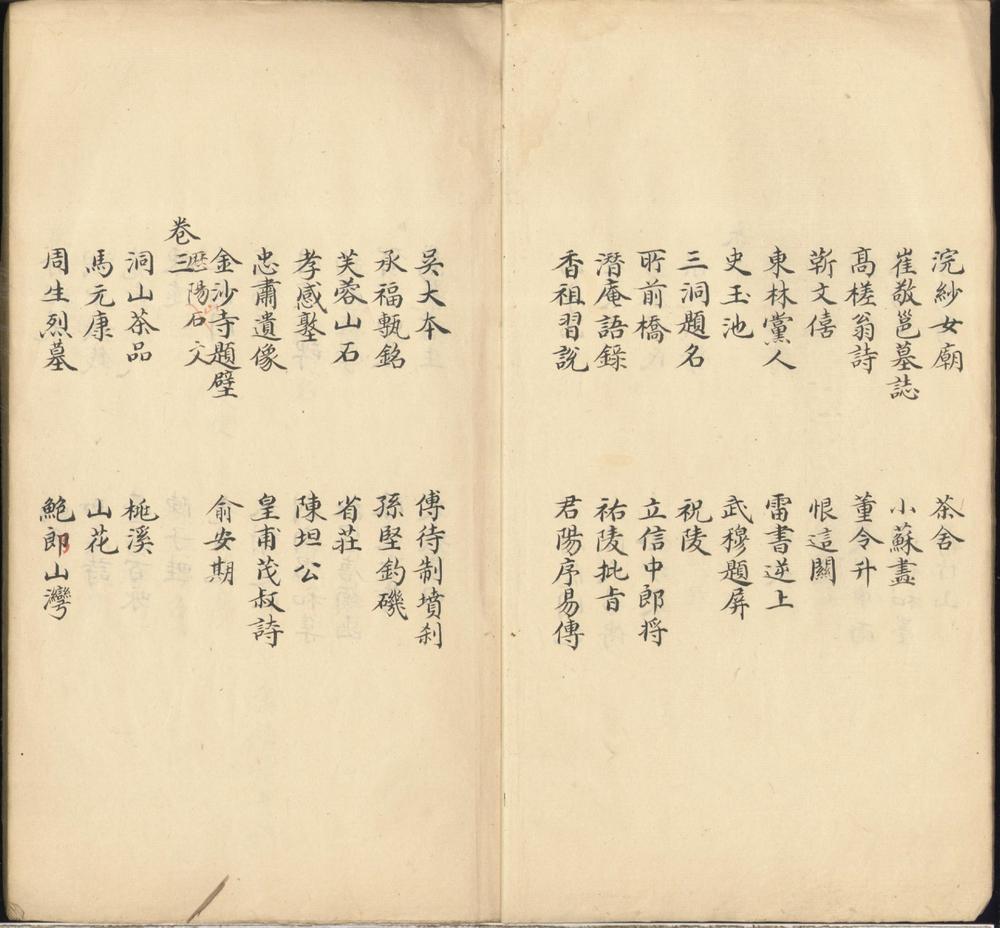 浣紗女廟　茶舍
崔敬邕墓誌　小蘇畫
高槎翁詩　董令升
蘄文僖　恨這關
東林黨人　雷書逆上
史玉池　武穆題屏
三洞題名　祝陵
所前橋　立信中郎將
潛庵語錄　祐陵批旨
香祖習說　君陽序易傳
吳大本　傅待制墳剎
永福甎銘　孫堅釣磯
芙蓉山石　省莊
孝感墼　陳坦公
忠肅遺像　皇甫茂叔詩
金沙寺題壁　俞安期
歷陽石文
卷三
洞山茶品　桃溪
馬元康　山花
周生烈墓　鮑郎山灣